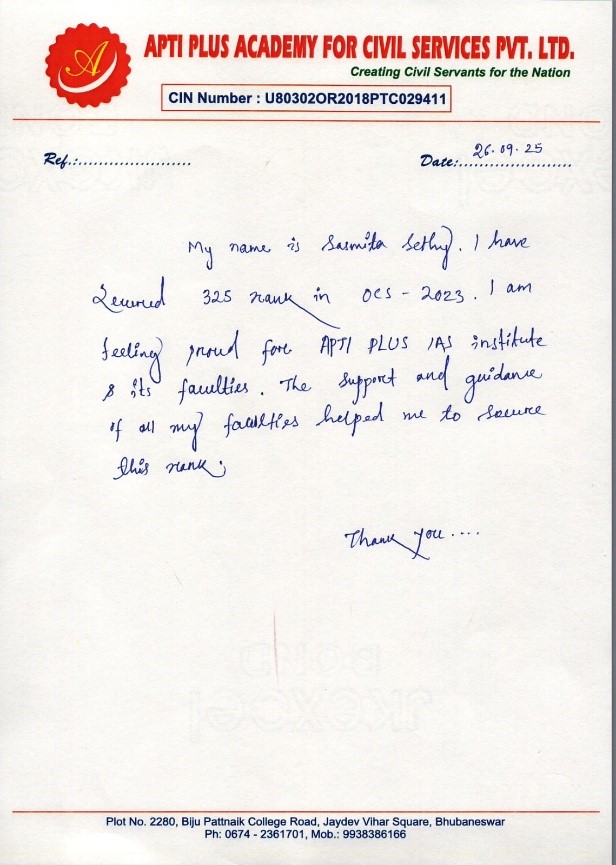 A
APTI PLUS ACADEMY FOR CIVIL SERVICES PVT. LTD.
Creating Civil Servants for the Nation
CIN Number : U80302OR2018PTC029411
Ref.:...................... Date:......................
26.09.25
My name is Sasmita Sethy. I have
Secured 325 rank in OCS - 2023. I am
feeling proud for APTI PLUS IAS institute
& its faculties. The support and guidance
of all my faculties helped me to secure
this rank.
Thank you....
BOND
Plot No. 2280, Biju Pattnaik College Road, Jaydev Vihar Square, Bhubaneswar
Ph: 0674 - 2361701, Mob.: 9938386166